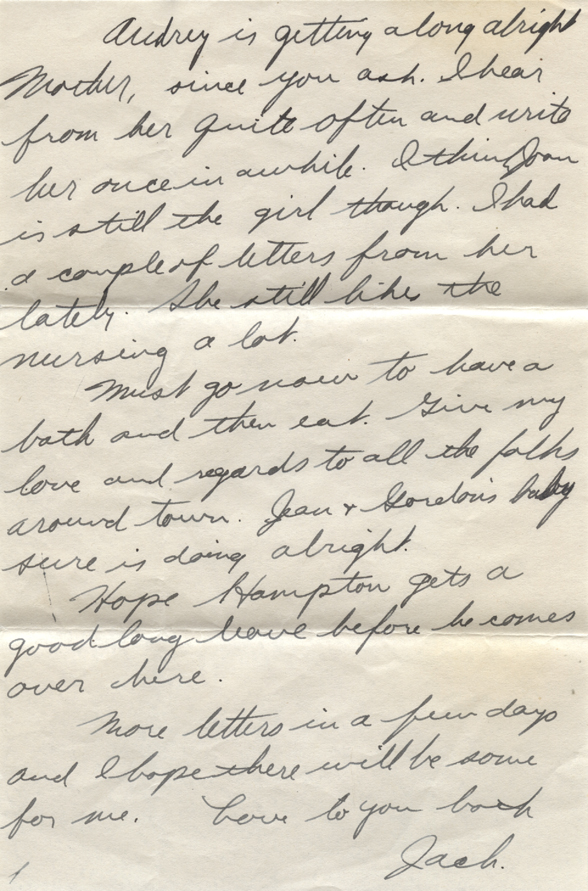 Audrey is getting along alright
Mother, since you ask. I hear
from her quite often and write
her once in awhile. I think Joan
is still the girl though. I had
a couple of letters from her
lately. She still likes the
nursing a lot.
Must go now to have a
bath and then eat. Give my
love and regards to all the folks
around town. Jean + Gordon's baby
sure is doing alright.
Hope Hampton gets a
good long leave before he comes
over here.
More letters in a few days
and I hope there will be some
for me. Love to you both
Jack.